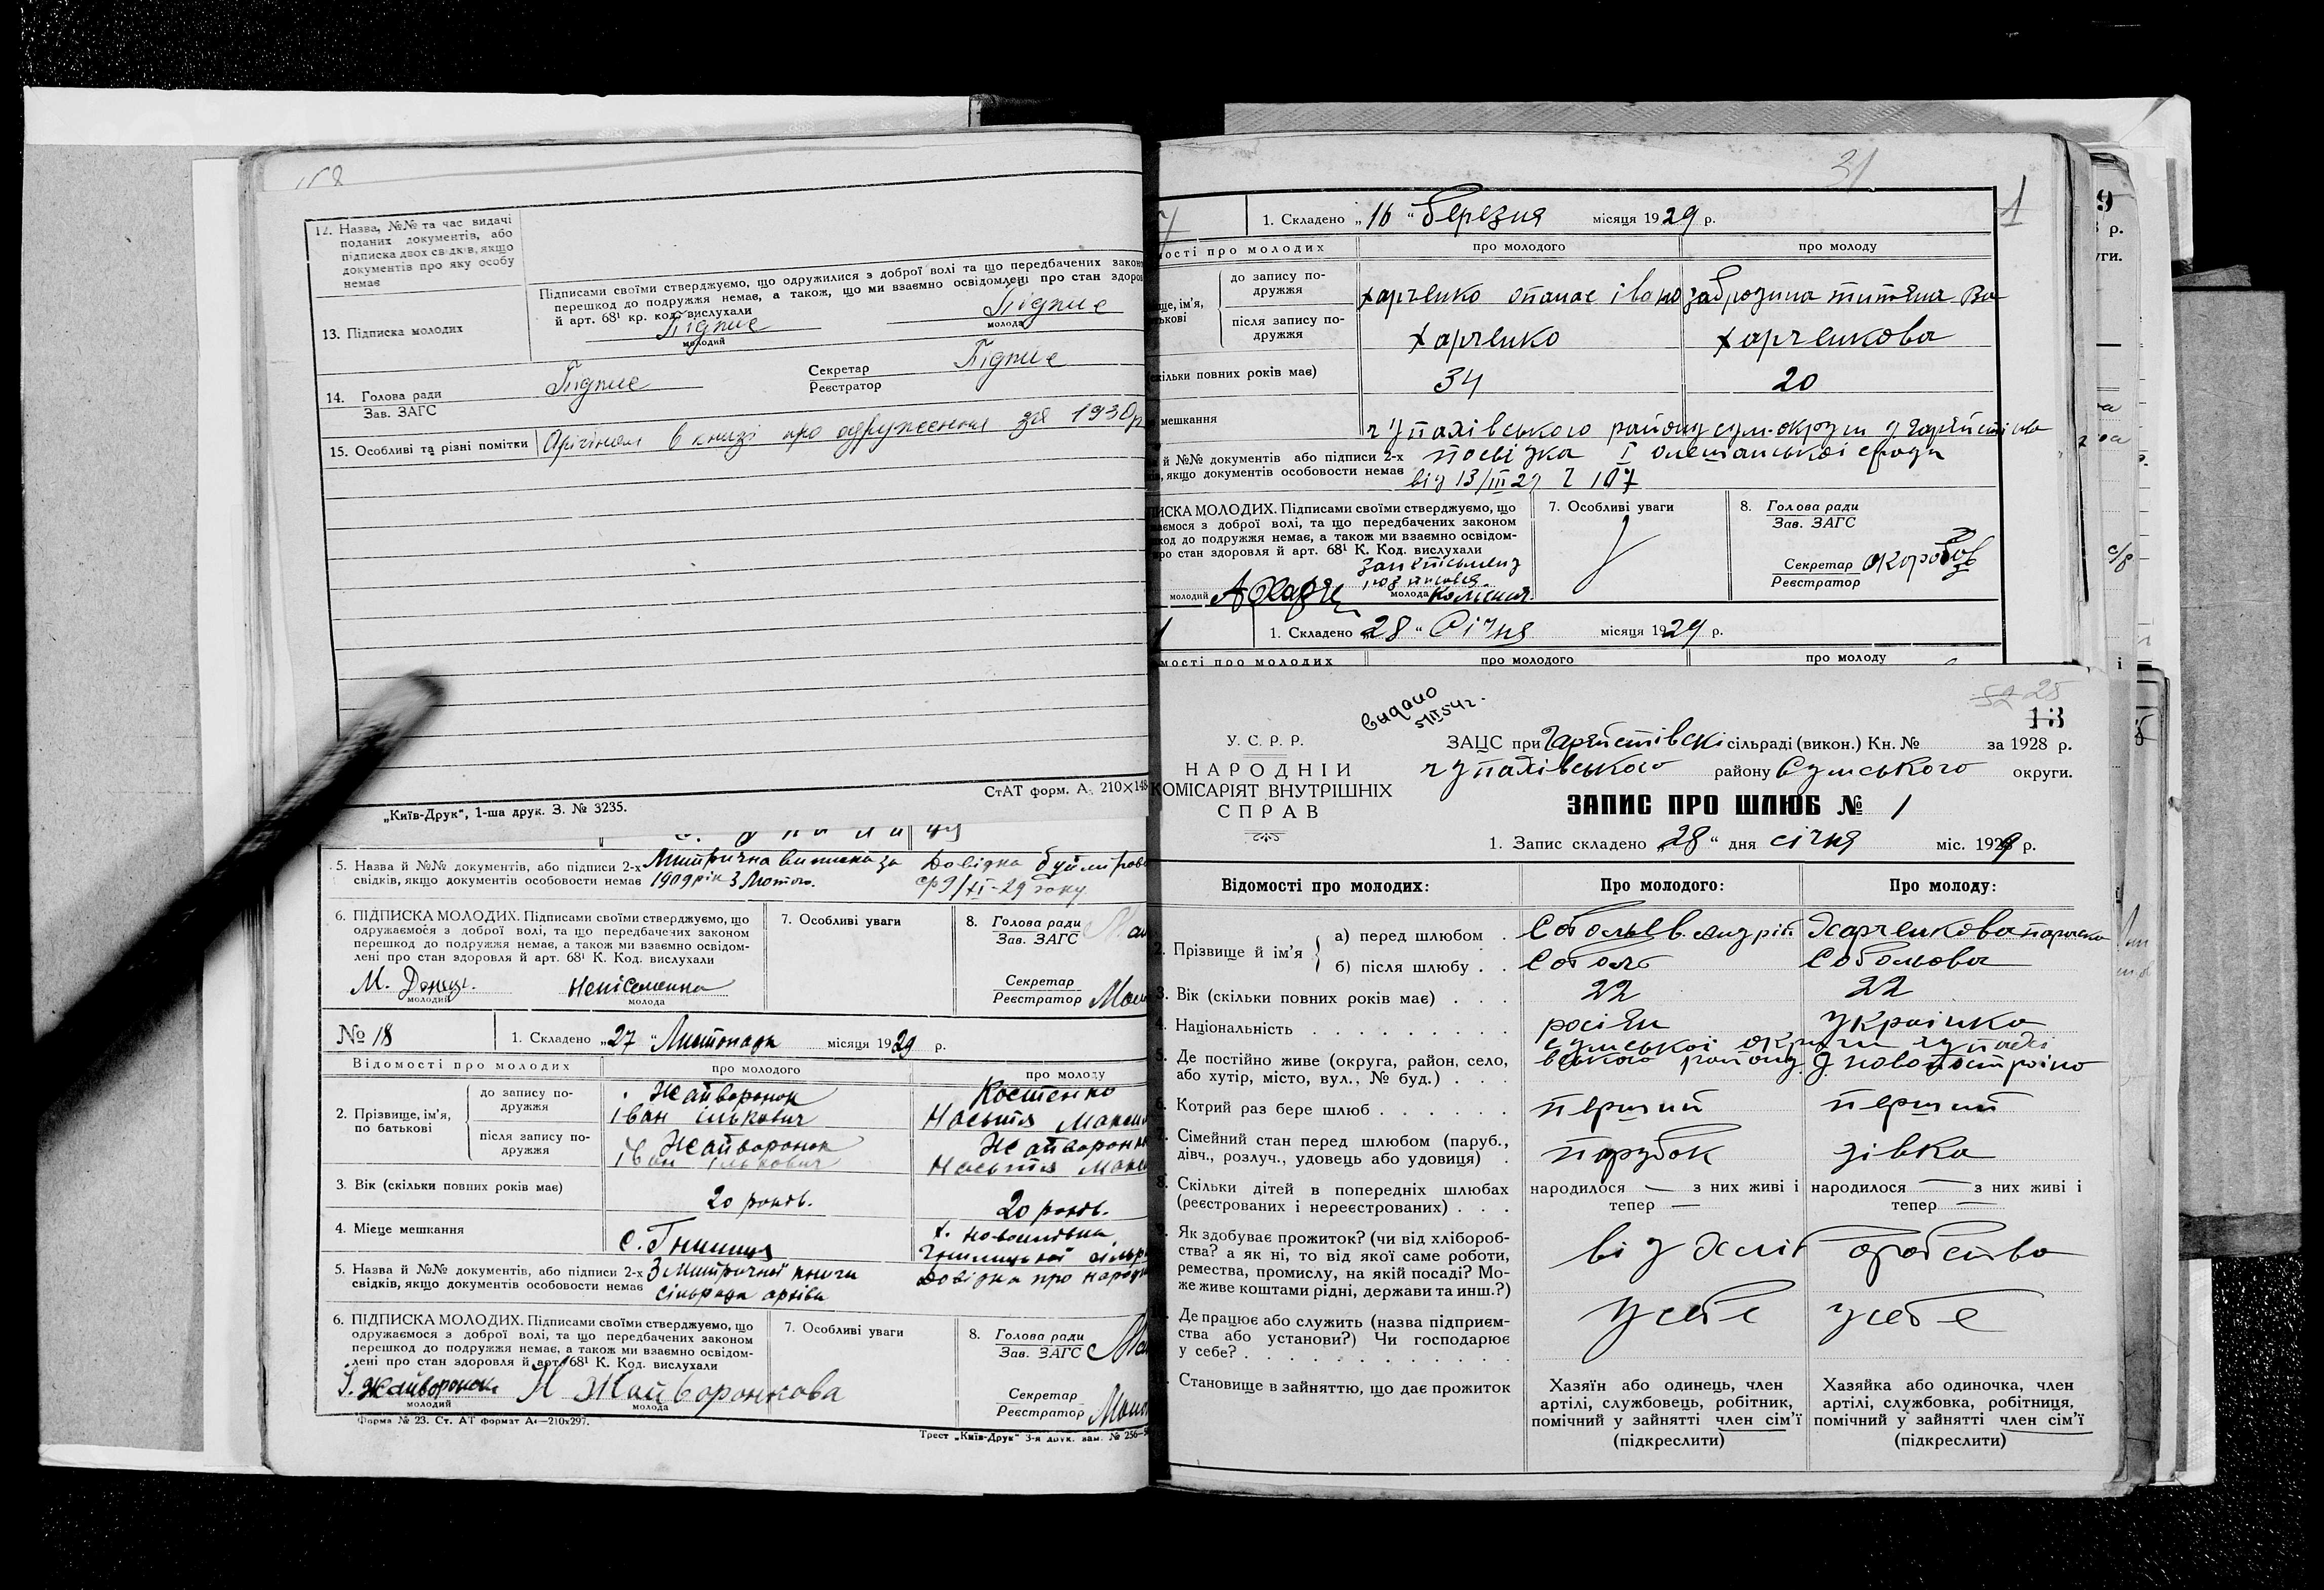 12. Назва, №№ та час видачі
поданих документів, або
підписка двох свідків, якщо
документів про яку особу
немає
13. Підписка молодих
Підписами своїми стверджуємо, що одружилися з доброї волі та що передбачених закон
перешкод до подружжя немає, а також, що ми взаємно освідомлені про стан здоров
й арт. 68¹ кр. код. вислухали
Підпис Підпис
молодий молода
14. Голова ради
Зав. ЗАГС
Підпис
Секретар
Реєстратор
Підпис
15. Особливі та різні помітки
в книзі про одруження за 1930р
СтАТ форм. А₅ 210×148
„Київ-Друк“, 1-ша друк. З. № 3235.
5. Назва й №№ документів, або підписи 2-х
свідків, якщо документів особовости немає
Митрична виписка за
1909 рік 3 Лютого.
Довідка
ср 9/XI-29 року
6. ПІДПИСКА МОЛОДИХ. Підписами своїми стверджуємо, що
одружаємося з доброї волі, та що передбачених законом
перешкод до подружжя немає, а також ми взаємно освідом-
лені про стан здоровля й арт. 68¹ К. Код. вислухали
М. Донец.
молодий
молода
7. Особливі уваги
8. Голова ради
Зав. ЗАГС
Секретар
Реєстратор
№ 18
1. Складено „27 “ Листопада місяця 1929 р.
Відомості про молодих
про молодого
про молоду
2. Прізвище, ім'я,
по батькові
до запису по-
дружжя
Жайворонок
Іван Ількович
Костенко
Настя
після запису по-
дружжя
Жайворонок
Іван Ількович
Настя
3. Вік (скільки повних років має)
20 років.
20 років.
4. Місце мешкання
с. Гнилиця
5. Назва й №№ документів, або підписи 2-х
свідків, якщо документів особовости немає
З Митричної книги
сільради архіви
Довідка про народж
6. ПІДПИСКА МОЛОДИХ. Підписами своїми стверджуємо, що
одружаємося з доброї волі, та що передбачених законом
перешкод до подружжя немає, а також ми взаємно освідом-
лені про стан здоровля й арт. 68¹ К. Код. вислухали
І. Жайворонок Н Жайворонкова
молодий молода
7. Особливі уваги
8. Голова ради
Зав. ЗАГС
Секретар
Реєстратор
Форма № 23. Ст. АТ формат А₄—210х297.
Трест „Київ-Друк“ 3-я друк. зам. № 256—
31
1
1. Складено „16 “ березня місяця 1929 р.
ості про молодих
про молодого
про молоду
ще, ім'я,
тькові
до запису по-
дружжя
харченко опанас івано
забродина
після запису по-
дружжя
харченко
харченкова
скільки повних років має)
34
20
мешкання
чупахівського району сум-округи
й №№ документів або підписи 2-х
якщо документів особовости немає
посвідка
від 13/III 29 107
ПИСКА МОЛОДИХ. Підписами своїми стверджуємо, що
аємося з доброї волі, та що передбачених законом
код до подружжя немає, а також ми взаємно освідом-
про стан здоровля й арт. 68¹ К. Код. вислухали
молодий
молода
7. Особливі уваги
8. Голова ради
Зав. ЗАГС
Секретар
Реєстратор
1. Складено „28 “ Січня місяця 1929 р.
мості про молодих
про молодого
про молоду
видано
52 25
13
У. С. Р. Р.
НАРОДНІЙ
КОМІСАРІЯТ ВНУТРІШНІХ
СПРАВ
ЗАЦС при сільраді (викон.) Кн. № за 1928 р.
чупахівського району Сумського округи.
ЗАПИС ПРО ШЛЮБ № 1
1. Запис складено „28“ дня січня міс. 1929 р.
Відомості про молодих:
Про молодого:
Про молоду:
2. Прізвище й ім'я
а) перед шлюбом .
Харченкова параска
б) після шлюбу . .
Соболь
Соболова
3. Вік (скільки повних років має) . . .
22
22
4. Національність . . . . . . . . .
росіян
українка
5. Де постійно живе (округа, район, село,
або хутір, місто, вул., № буд.) . . .
сумської округи чупахі
вського району
6. Котрий раз бере шлюб . . . . . .
перший
перший
7. Сімейний стан перед шлюбом (паруб.,
дівч., розлуч., удовець або удовиця) .
парубок
дівка
8. Скільки дітей в попередніх шлюбах
(реєстрованих і нереєстрованих) . . .
народилося — з них живі і
тепер —
народилося — з них живі і
тепер —
Як здобуває прожиток? (чи від хлібороб-
ства? а як ні, то від якої саме роботи,
ремества, промислу, на якій посаді? Мо-
же живе коштами рідні, держави та инш.?)
від хліб оробства
Де працює або служить (назва підприєм-
ства або установи?) Чи господарює
у себе? . . . . . . . . . . . .
у себе
у себе
Становище в зайняттю, що дає прожиток
Хазяїн або одинець, член
артілі, службовець, робітник,
помічний у зайнятті член сім'ї
(підкреслити)
Хазяйка або одиночка, член
артілі, службовка, робітниця,
помічний у зайнятті член сім'ї
(підкреслити)